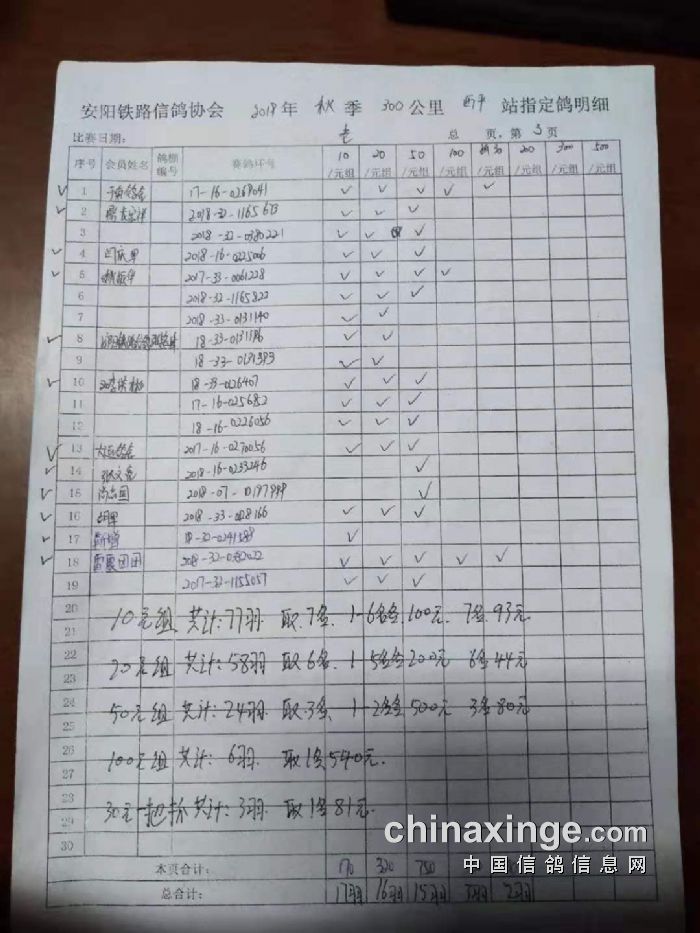 安阳铁路信鸽协会 2018年 秋季 300公里 西平 站指定鸽明细
比赛日期: 总 页,第 3 页
序号 会员姓名 鸽棚编号 赛鸽环号 10/元组 20/元组 50/元组 100/元组 200/元组 300/元组 500/元组
✓ 1 17-16-0268041 ✓ ✓ ✓ ✓ ✓
✓ 2 2018-32-1165673 ✓ ✓ ✓
3 2018-32-0380221 ✓ ✓ ✓
✓ 4 闫庆军 2018-16-0225006 ✓ ✓ ✓
✓ 5 2017-33-0061228 ✓ ✓ ✓ ✓
6 2018-32-1165822 ✓ ✓ ✓
7 2018-33-0131140 ✓ ✓
✓ 8 18-33-0131196 ✓ ✓
9 18-33-0131393 ✓ ✓
✓ 10 18-33-0226407 ✓ ✓ ✓
11 17-16-025682 ✓ ✓ ✓
12 18-16-0226056 ✓ ✓ ✓
✓ 13 2017-16-0270056 ✓ ✓ ✓
✓ 14 张文亮 2018-16-0233246 ✓
✓ 15 尚志国 2018-07-0197999 ✓
✓ 16 胡军 2018-33-0128166 ✓ ✓ ✓
✓ 17 靳增 18-32-0241588 ✓
✓ 18 雷震团团 2018-32-0382022 ✓ ✓ ✓ ✓ ✓ ✓
19 2017-32-1155057 ✓ ✓ ✓
20
10元组 共计:77羽 取7名、1-6名各100元、7名93元
21
22
20元组 共计:58羽 取6名、1-5名各200元 6名44元
23
24
50元组 共计:24羽 取3名、1-2名各500元 3名80元
25
26
100元组 共计:6羽 取1名540元
27
28
30元一把抓 共计:3羽 取1名81元
29
30
本页合计: 170 320 750
总合计: 17羽 16羽 15羽 3羽 2羽
chinaxinge.com
中国信鸽信息网